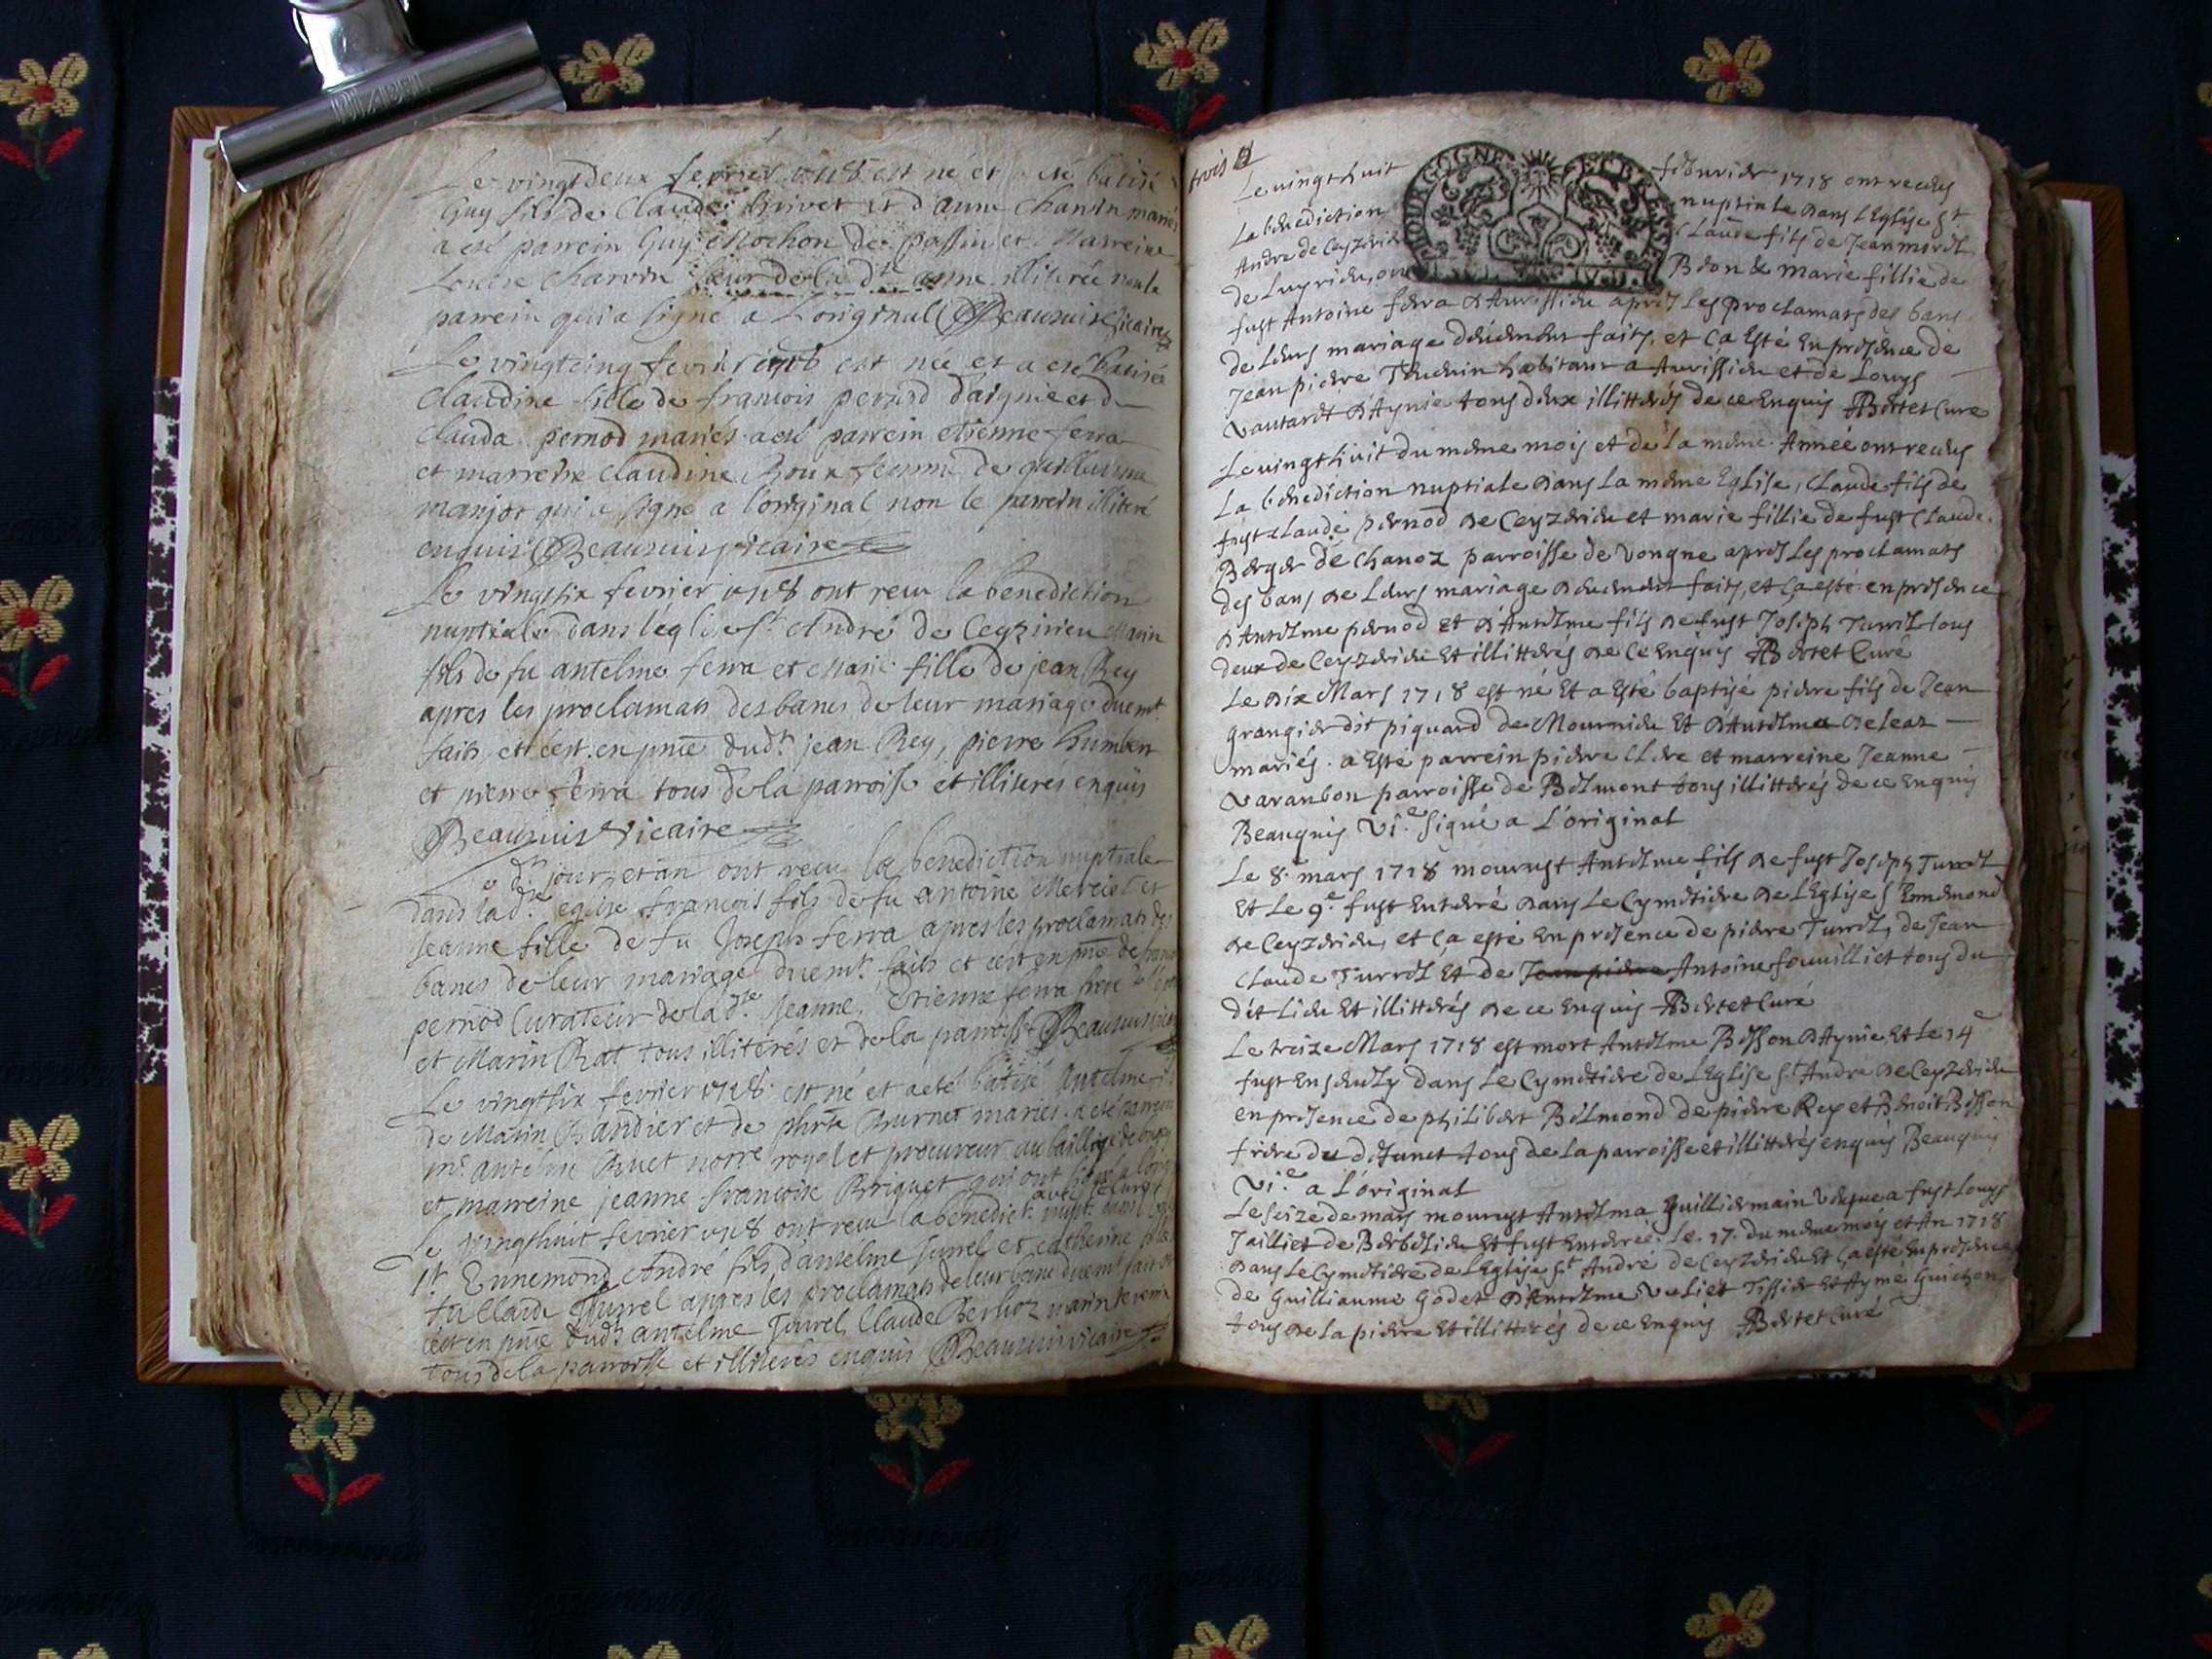 Le vingtdeux fevrier 1718 est né et a eté batisé
Guy fils de Claude Brivet et d'anne Charvin mariés
a eté parrein Guy Mochon de passin et Marreine
Louise Charvin anne illiterée non le
parrein qui a signé a L'original Beauquis vicaire
Le vingtcinq fevrier 1718 est née et a eté batisée
Claudine fille de francois pernod d'aignie et de
Clauda pernod mariés a eté parrein etienne ferra
et marreine Claudine Roux femme de guillaume
manjot qui a signé a l'original non le parrein illiteré
enquis Beauquis vicaire
Le vingtsix fevrier 1718 ont receu la benediction
nuptiale dans l'eglise St André de Ceyzirieu Marin
fils de fu antelme ferra et Marie fille de jean Rey
apres les proclamats des bancs de leur mariage duemt
faits et c'est en pnce dudt jean Rey, pierre humbert
et pierre ferra tous de la parroisse et illiterés enquis
Beauquis Vicaire
Le dt jour et an ont receu la benediction nuptiale
dans lad.te eglise francois fils de fu antoine Merciel et
Jeanne fille de fu Joseph ferra apres les proclamats des
bancs de leur mariage duemt faits et c'est en pnce de
pernod Curateur de lad.te Jeanne, Etienne ferra frere
et Marin Rat tous illiterés et de la parroisse Beauquis
Le vingtsix fevrier 1718 est né et a eté batisé Antelme
de Marin Bandier et de Burnet mariés a eté parrein
mr antelme Ruet notre royal et procureur au bailliage de bugey
et marreine jeanne francoise Briquet qui ont signé a l'orig
Le vingthuit fevrier 1718 ont receu la benedict. nupt. dans
St Ennemond André fils d'antelme Jurrel et catherine fille
fu Claude Thurrel apres les proclamats de leur banc duemt fait et
c'est en pnce dudt antelme Jurrel, Claude Berlioz marin
tous de la parroisse et illiterés enquis Beauquis vicaire
trois
BOURGOGNE ET BRESSE
Le vingt huit feburier 1718 ont receus
La benediction nuptiale dans L'Eglise St
Andre de Ceyzerieu Claude fils de Jean
de Luyrieu, Beon & marie fillie de
fust Antoine ferra d'Aurissieu apres Les proclamats des bans
de Leurs mariage deuement faits, et Ca Esté En presence de
Jean piere habitant a Aurissieu et de Louys
Vautaret d'Aynie tous deux illitterés de ce Enquis Bertet Cure
Le vingt huit du meme mois et de La meme Année ont receus
La benediction nuptiale dans La meme Eglise, Claude fils de
fust Claude pernod de Ceyzerieu et marie fillie de fust Claude
Berger de Chanoz parroisse de Vongne apres Les proclamats
des bans de Leurs mariage deuement faits, et Ca esté en presence
d'Antelme pernod et d'Antelme fils de fust Joseph Turrel tous
deux de Ceyzerieu Et illitterés de Ce Enquis Bertet Curé
Le dix Mars 1718 est né Et a Esté baptisé piere fils de Jean
grangier dit piquard de Mournieu Et d'Antelma
mariés. a Esté parrein piere Clere et marreine Jeanne
Varanbon parroisse de Belmont tous illitterés de ce Enquis
Beauquis Vi.e signé a L'original
Le 8e mars 1718 mourust Antelme fils de fust Joseph Turrel
Et Le 9e fust Enteré dans Le Cymetiere de L'Eglise St Ennemond
de Ceyzerieu, et Ca esté En presence de piere Turrel, de Jean
Claude Turrel Et de Jean piere Antoine fouilliet tous du
det Lieu Et illitterés de ce Enquis Bertet Curé
Le treize Mars 1718 est mort Antelme Besson d'Aynie, Et Le 14e
fust Enseuely dans Le Cymetiere de L'Eglise St André de Ceyzerieu
en presence de philibert Belmond de piere Rey et Benoit Besson
frere du defunct tous de La parroisse et illitterés enquis Beauquis
Vi.e a L'original
Le seize de mars mourust Antelma guilliermain Vefue a fust Louys
Jailliet de Et fust Enterée Le 17. du meme mois et An 1718
dans Le Cymetiere de L'Eglise St André de Ceyzerieu Et Ca esté En presence
de Guilliaume Godet d'Antelme Vuliet Tissier Et Aymé Guichon
tous de La piere Et illitterés de ce Enquis Bertet Curé